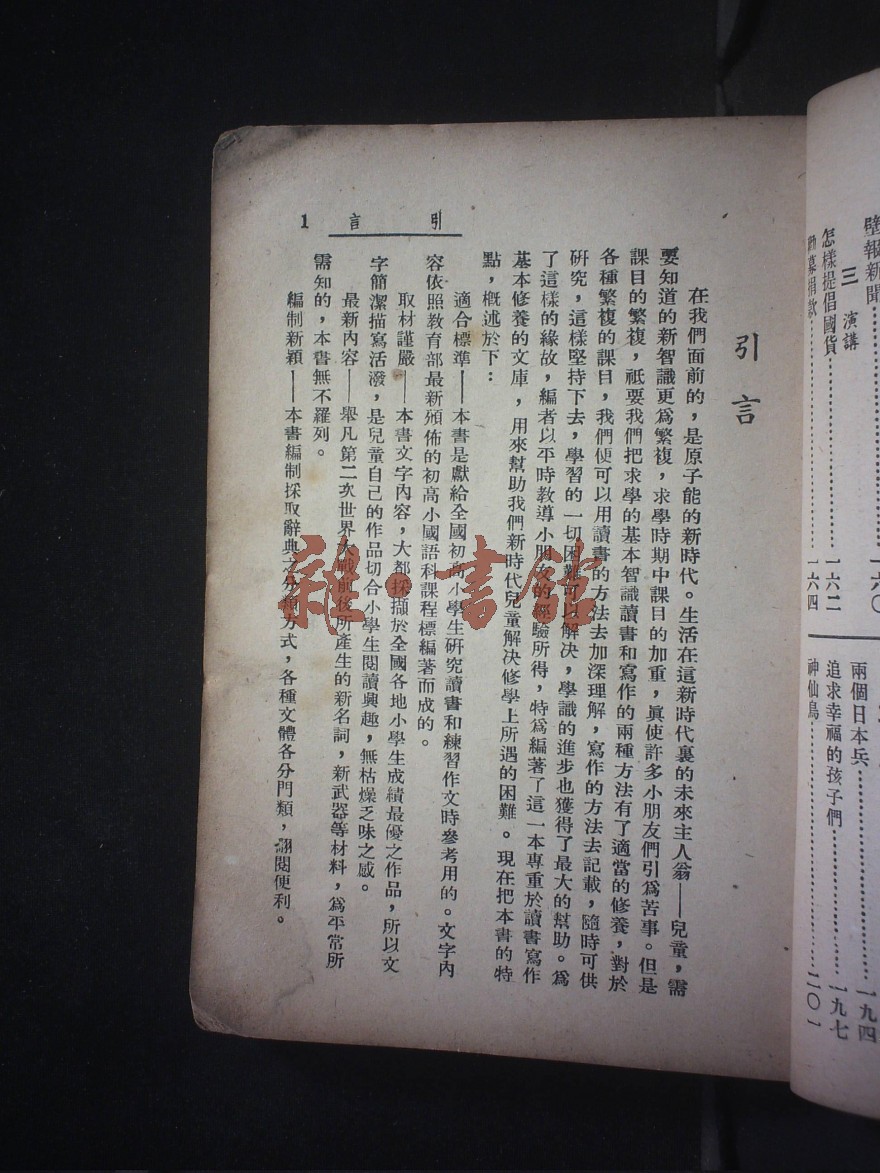 壁報新聞……………一六〇
三　演講
怎樣提倡國貨……………一六二
勸募捐款……………一六四
兩個日本兵……………一九四
追求幸福的孩子們……………一九七
神仙鳥……………二〇一
引言　1
引言
在我們面前的，是原子能的新時代。生活在這新時代裏的未來主人翁——兒童，需
要知道的新智識更爲繁複，求學時期中課目的加重，眞使許多小朋友們引爲苦事。但是
課目的繁複，祇要我們把求學的基本智識讀書和寫作的兩種方法有了適當的修養，對於
各種繁複的課目，我們便可以用讀書的方法去加深理解，寫作的方法去記載，隨時可供
硏究，這樣堅持下去，學習的一切困難可以解決，學識的進步也獲得了最大的幫助。爲
了這樣的緣故，編者以平時教導小朋友的經驗所得，特爲編著了這一本專重於讀書寫作
基本修養的文庫，用來幫助我們新時代兒童解决修學上所遇的困難。現在把本書的特
點，槪述於下：
適合標準——本書是獻給全國初高小學生硏究讀書和練習作文時參考用的。文字內
容依照教育部最新頒佈的初高小國語科課程標編著而成的。
取材謹嚴——本書文字內容，大都採擷於全國各地小學生成績最優之作品，所以文
字簡潔描寫活潑，是兒童自己的作品切合小學生閱讀興趣，無枯燥乏味之感。
最新內容——舉凡第二次世界大戰前後所產生的新名詞，新武器等材料，爲平常所
需知的，本書無不羅列。
編制新穎——本書編制採取辭典之分類方式，各種文體各分門類，翻閱便利。
雜·書館